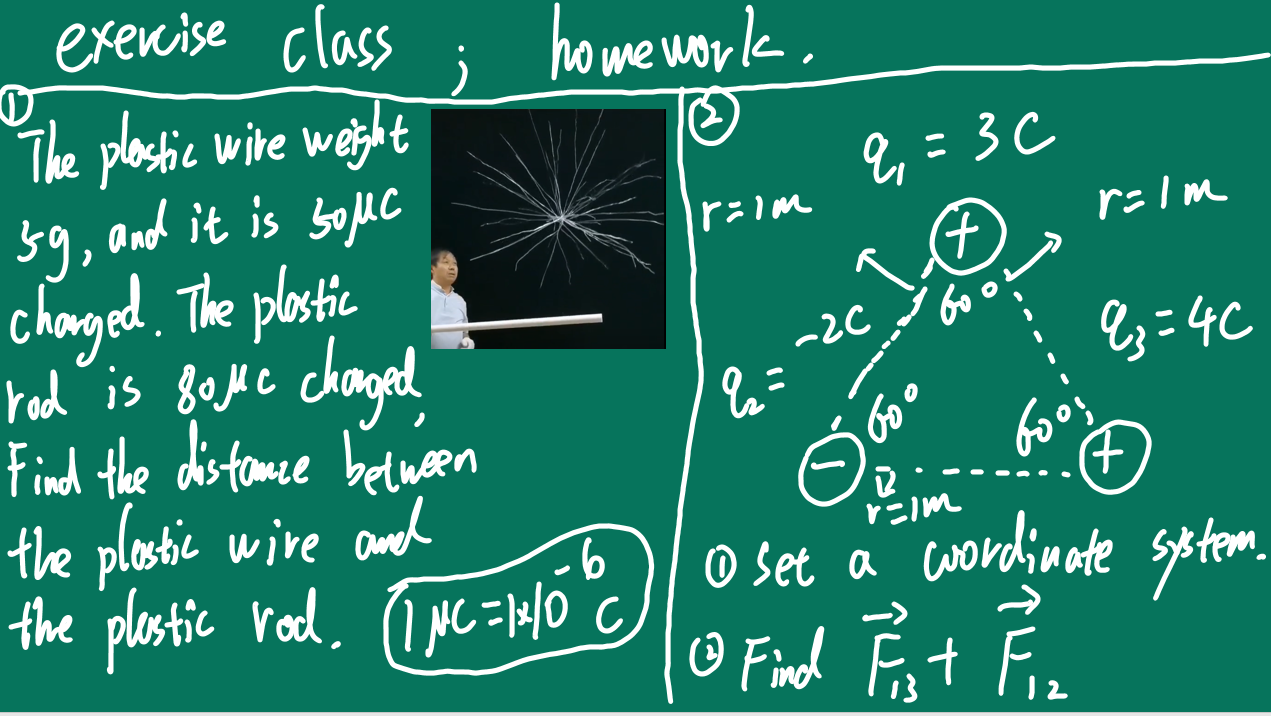 exercise class ; homework.
①
The plastic wire weight
5g, and it is 50μC
charged. The plastic
rod is 80μC charged,
Find the distance between
the plastic wire and
the plastic rod.
1μC=1×10⁻⁶ C
②
q₁ = 3C
r=1m
r=1m
+
60°
-2C
q₂ =
q₃=4C
60°
60°
-
+
r=1m
① Set a coordinate system.
② Find F⃗₁₃ + F⃗₁₂